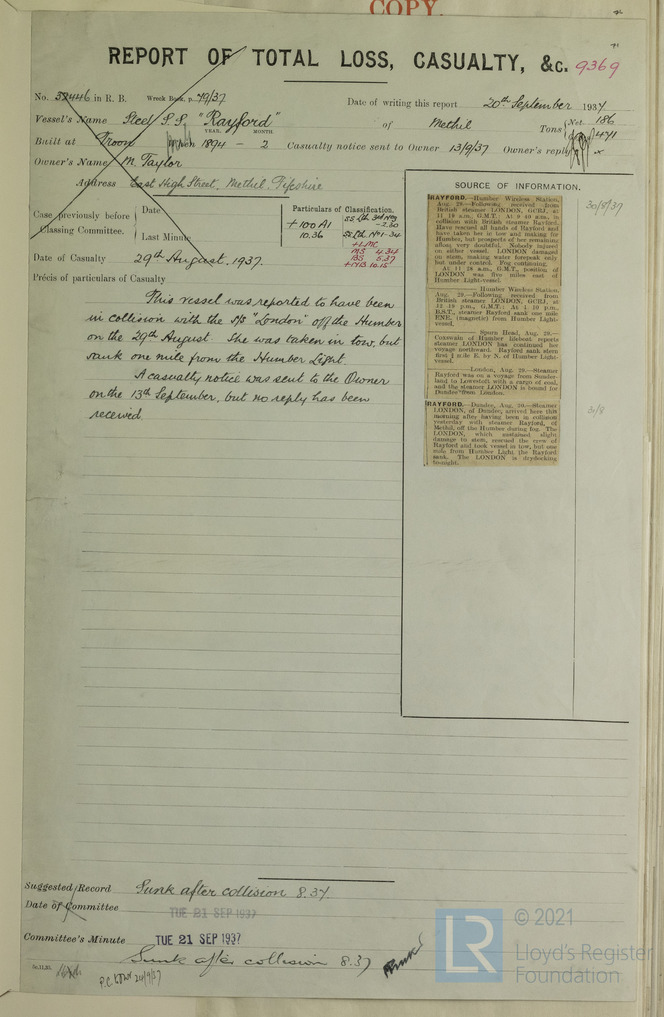 COPY.
REPORT OF TOTAL LOSS, CASUALTY, &c. 9369
No. 38446 in R. B. Wreck Book, p. 79/37
Date of writing this report 20th September 1937
Vessel's Name Steel S.S. "Rayford" of Methil
Tons { Net 186
471
Built at Troon YEAR, MONTH When 1894 - 2 Casualty notice sent to Owner 13/9/37 Owner's reply
Owner's Name M. Taylor
Address East High Street, Methil, Fifeshire
Case previously before Classing Committee. { Date
Last Minute
Particulars of Classification.
+100A1
10.36
+LMC
MS 4.34
BS 5.37
Date of Casualty 29th August, 1937.
Précis of particulars of Casualty
This vessel was reported to have been
in collision with the S/S "London" off the Humber
on the 29th August. She was taken in tow, but
sank one mile from the Humber Light.
A casualty notice was sent to the Owner
on the 13th September, but no reply has been
received.
SOURCE OF INFORMATION.
30/8/37
RAYFORD.—Humber Wireless Station,
Aug. 29.—Following received from
British steamer LONDON, GCRJ, at
11 19 a.m., G.M.T. At 9 40 a.m. in
collision with British steamer Rayford.
Have rescued all hands of Rayford and
have taken her in tow and making for
Humber, but prospects of her remaining
afloat very doubtful. Nobody injured
on either vessel. LONDON damaged
on stem, making water forepeak only
but under control. Fog continuing.
At 11 28 a.m., G.M.T., position of
LONDON was five miles east of
Humber Light-vessel.
Humber Wireless Station,
Aug. 29.—Following received from
British steamer LONDON, GCRJ, at
12 19 p.m., G.M.T. At 1 10 p.m.,
B.S.T., steamer Rayford sank one mile
ENE. (magnetic) from Humber Light-
vessel.
Spurn Head, Aug. 29.—
Coxswain of Humber lifeboat reports
steamer LONDON has continued her
voyage northward. Rayford sank stern
first 1 mile E. by N. of Humber Light-
vessel.
London, Aug. 29.—Steamer
Rayford was on a voyage from Sunder-
land to Lowestoft with a cargo of coal,
and the steamer LONDON is bound for
Dundee from London.
31/8
RAYFORD.—Dundee, Aug. 30.—Steamer
LONDON, of Dundee, arrived here this
morning after having been in collision
yesterday with steamer Rayford, of
Methil, off the Humber during fog. The
LONDON, which sustained slight
damage to stem, rescued the crew of
Rayford and took vessel in tow, but one
mile from Humber Light the Rayford
sank. The LONDON is drydocking
to-night.
Suggested Record Sunk after collision 8.37.
Date of Committee TUE 21 SEP 1937
Committee's Minute TUE 21 SEP 1937
Sunk after collision 8.37
© 2021
LR Lloyd's Register
Foundation